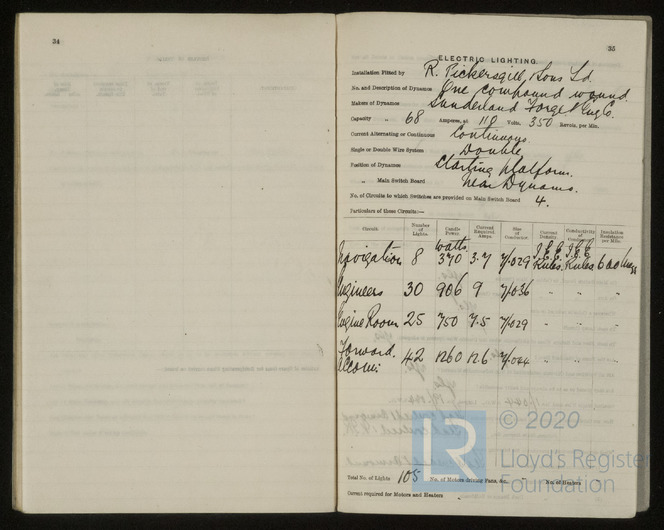 34
35
ELECTRIC LIGHTING.
Installation Fitted by R. Pickersgill & Sons Ld.
No. and Description of Dynamos One compound wound.
Makers of Dynamos Sunderland Forge & Eng Co.
Capacity „ 68 Amperes, at 110 Volts, 350 Revols. per Min.
Current Alternating or Continuous Continuous
Single or Double Wire System Double
Position of Dynamos Starting platform.
„ Main Switch Board Near Dynamo.
No. of Circuits to which Switches are provided on Main Switch Board 4.
Particulars of these Circuits:—
Circuit. Number of Lights. Candle Power. Current Required. Amps. Size of Conductor. Current Density. Conductivity of Conductor. Insulation Resistance per Mile.
watts
Navigation 8 370 3.7 7/.029 I.E.E. Rules. I.E.E. Rules 600 megs
Engineers 30 906 9 7/.036 „ „ „
Engine Room 25 750 7.5 7/.029 „ „ „
Forward. Accom: 42 1260 12.6 7/.044 „ „ „
Total No. of Lights 105 No. of Motors driving Fans, &c. No. of Heaters
Current required for Motors and Heaters
LR © 2020
Lloyd's Register
Foundation